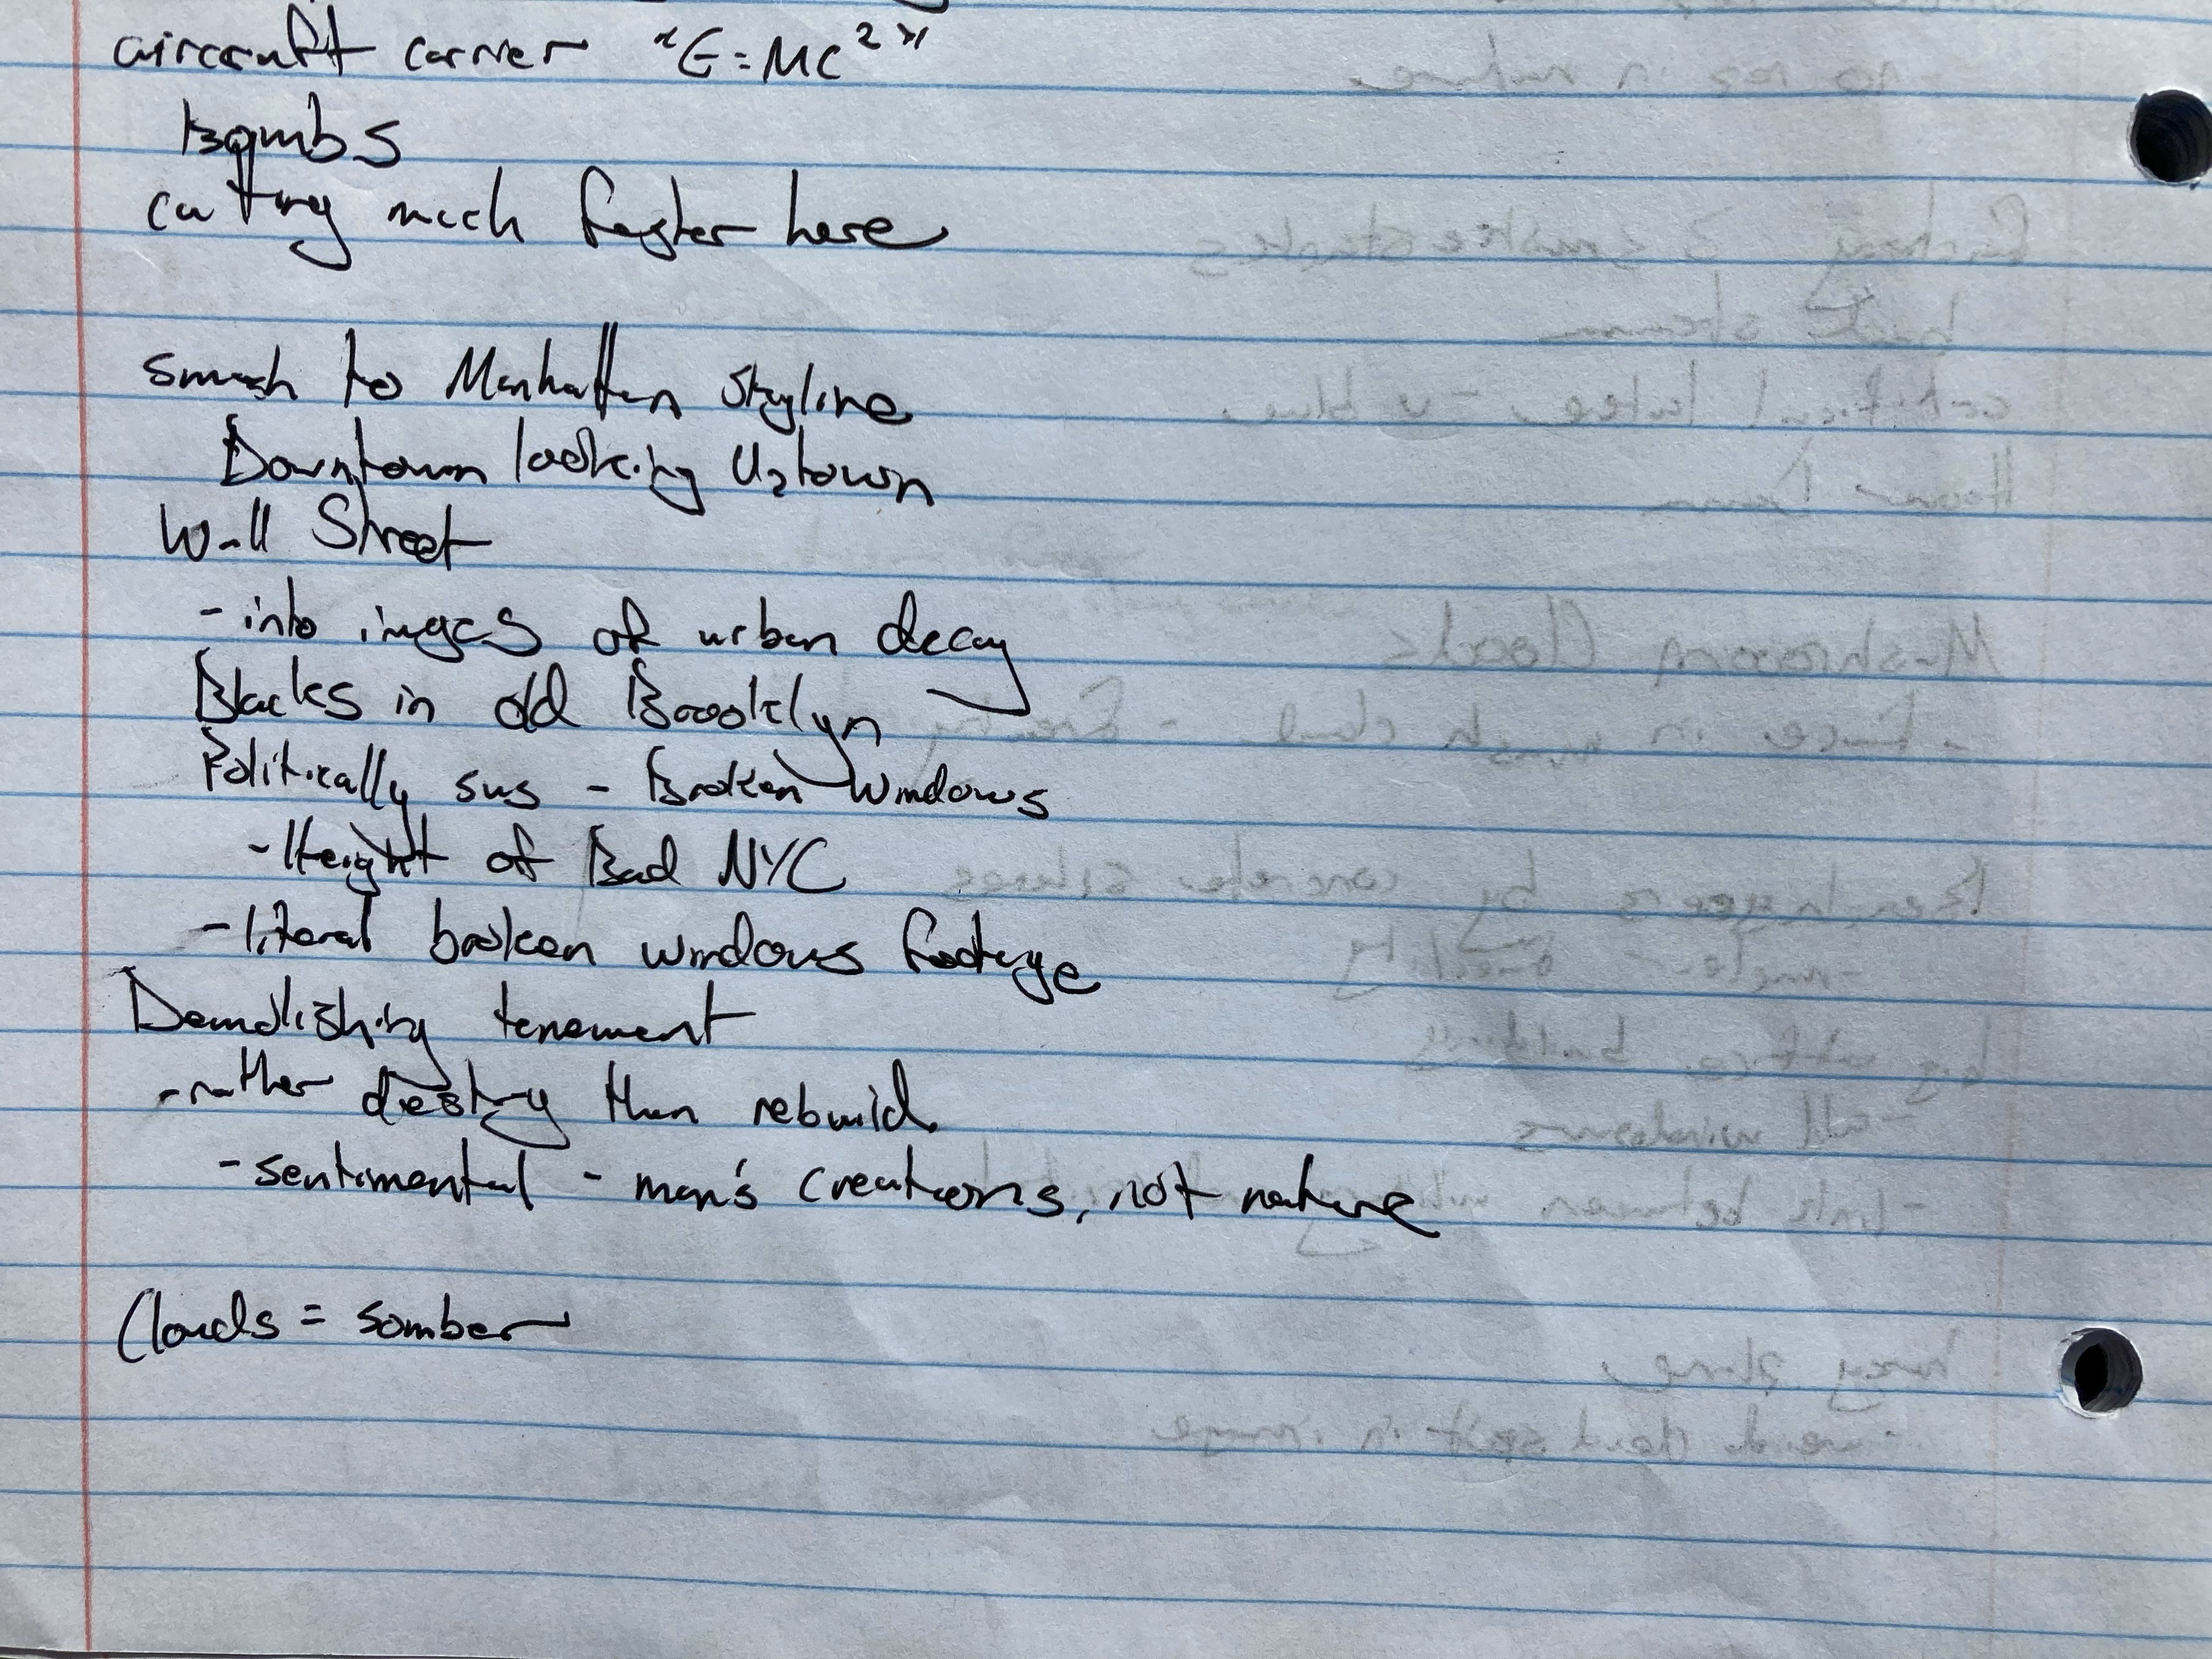 aircraft carrier "E=MC²"
Bombs
cutting much faster here
smash to Manhattan Skyline
Downtown looking Uptown
Wall Street
- into images of urban decay
Blacks in old Brooklyn
Politically sus - Broken Windows
- Height of Bad NYC
- literal broken windows footage
Demolishing tenement
- rather destroy than rebuild
- sentimental - man's creations, not nature
Clouds = somber